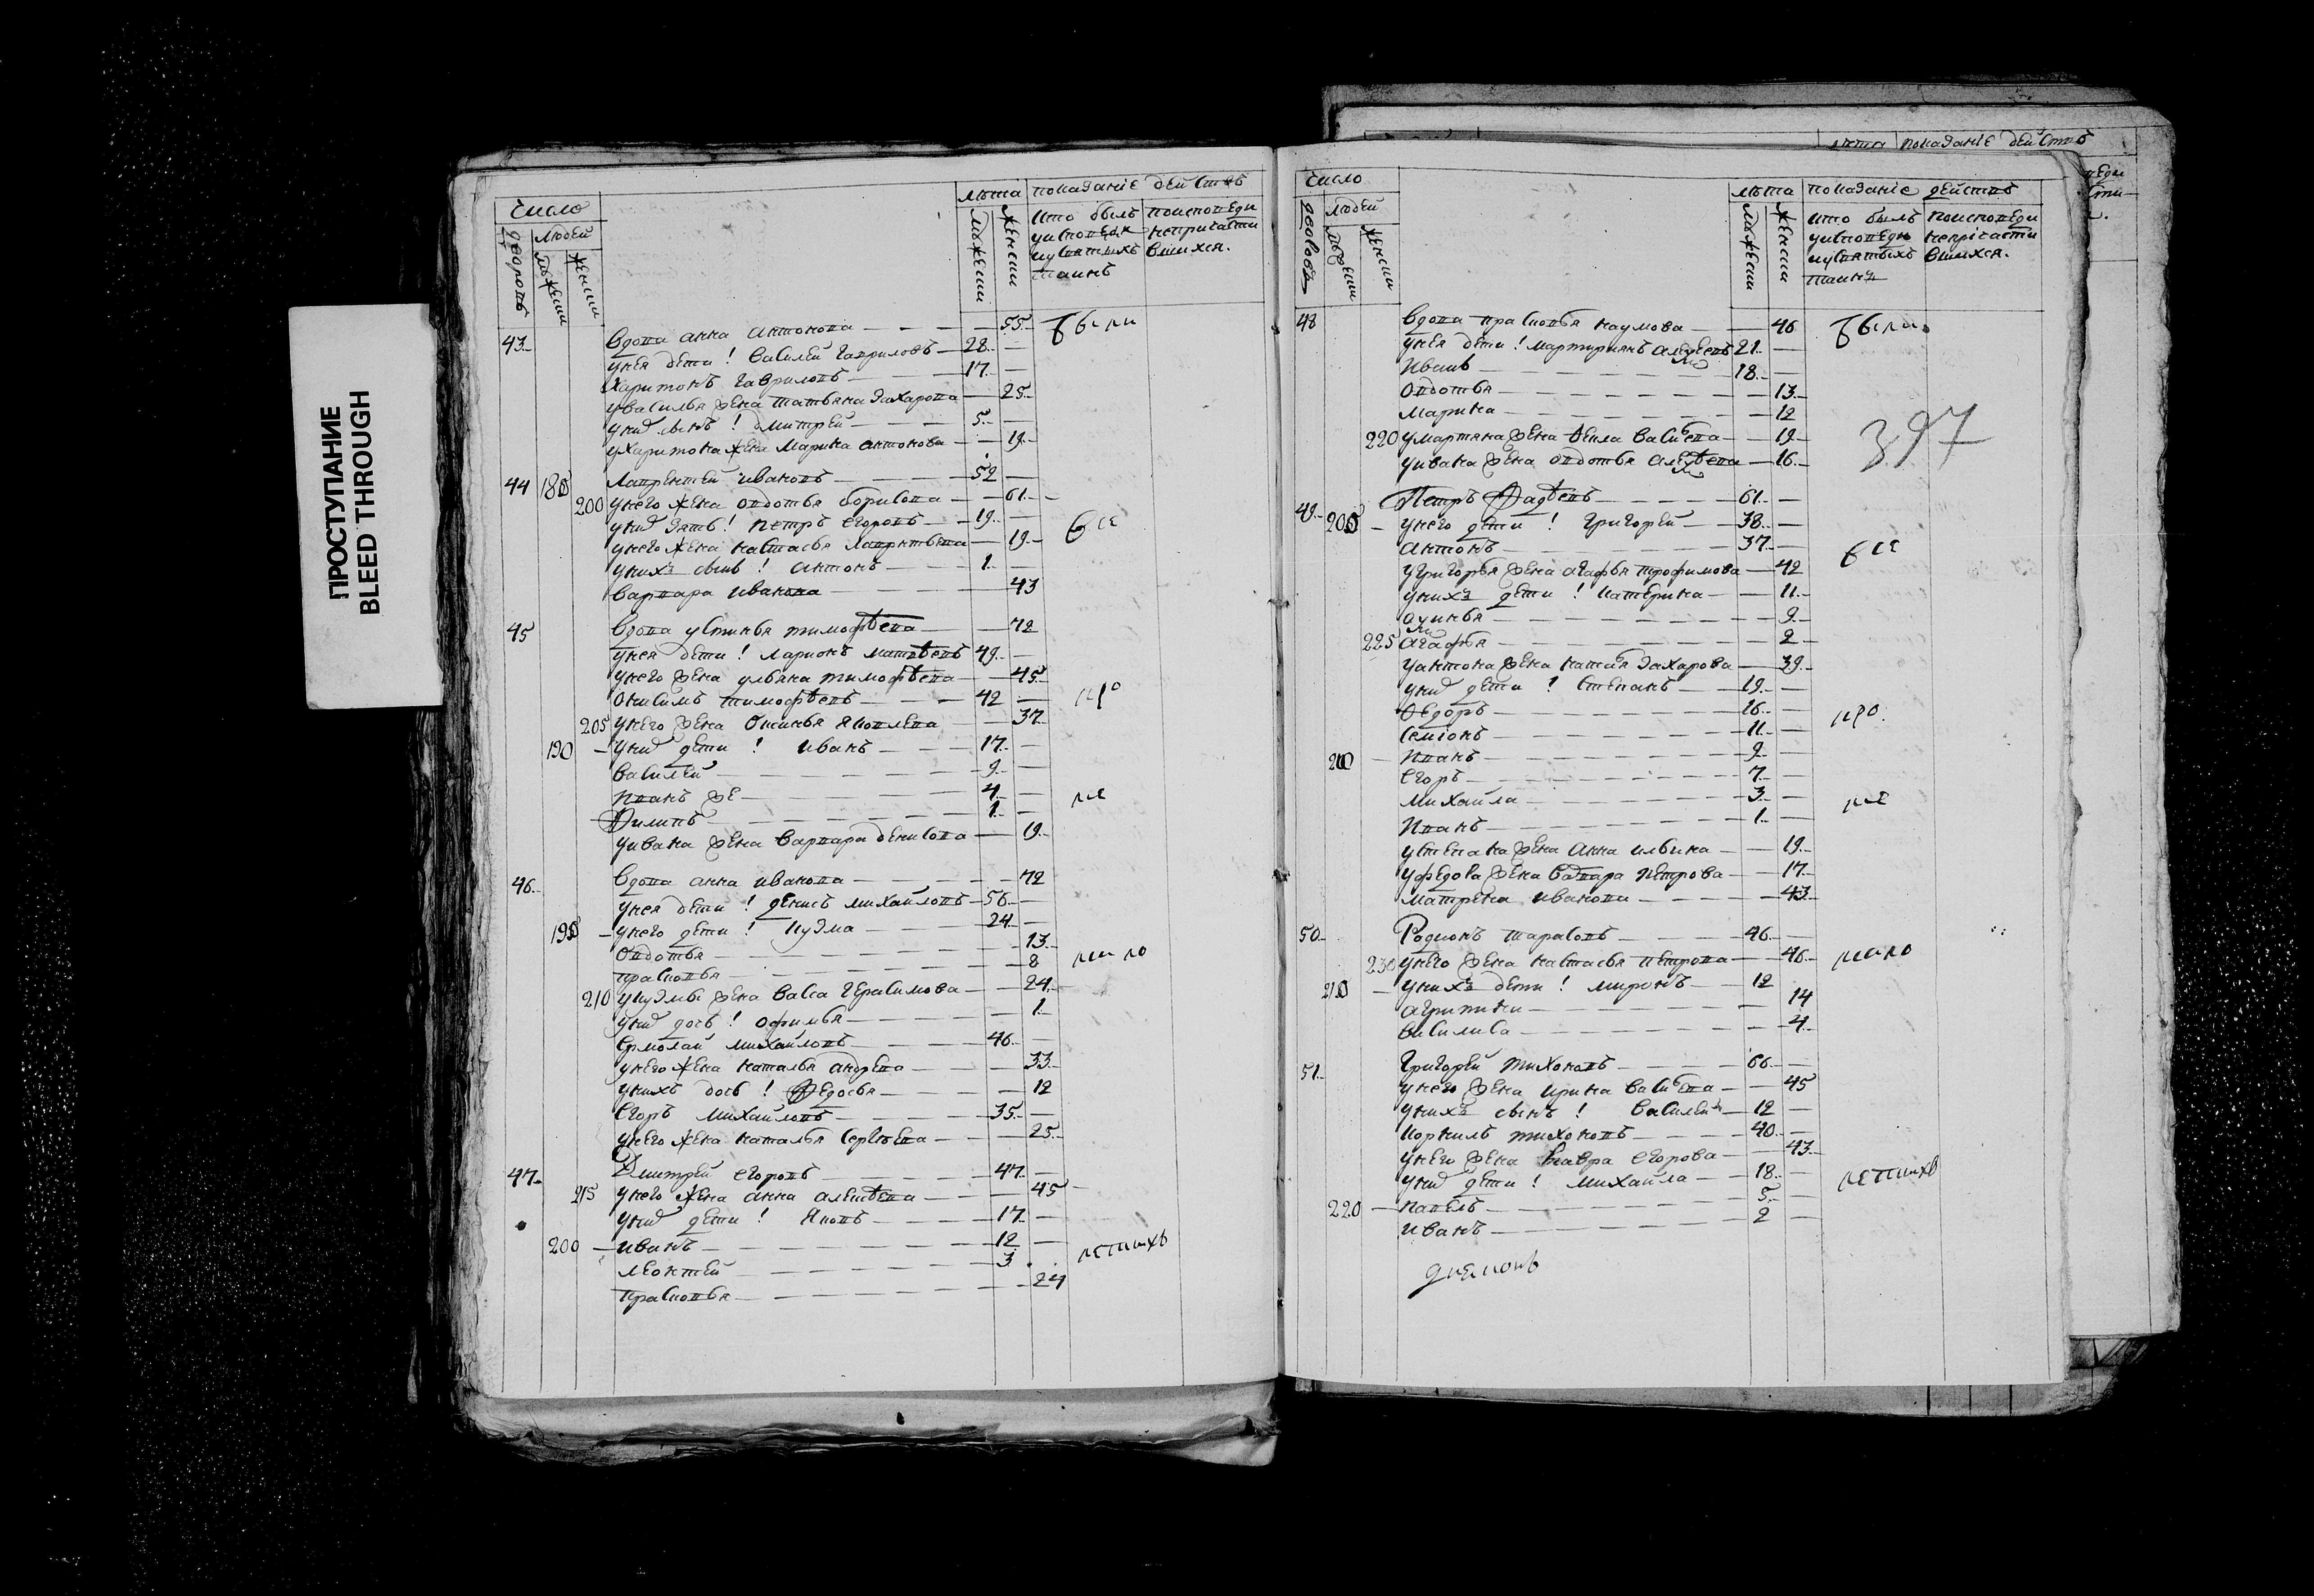 ПРОСТУПАНИЕ
BLEED THROUGH
число
лѣта показаніе действъ
дворовъ людей
мужески женски
мужески женски
кто былъ поисповеди
уисповеди непричасти
исвятыхъ вшихся.
таинъ
43 Вдова анна антонова 55 были
унея дети! василей гавриловъ 28
харитонъ гавриловъ 17
увасилья жена татьяна захарова 25
унихъ сынъ! дмитрей 5
ухаритона жена марина антонова 19
44 185 Лаврентей ивановъ 52
200 унего жена овдотья борисова 61
унихъ зять! петръ егоровъ 19
унего жена настасья лаврнтьева 19 все
унихъ сынъ! антонъ 1
варвара иванова 43
45 Вдова устинья тимофѣева 72
унея дети! ларионъ матвѣевъ 49
унего жена ульяна тимофѣева 45
онисимъ тимофѣевъ 42
205 унего жена аксинья яковлева 37
190 унихъ дети! иванъ 17
василей 9
иванъ же 4
Филипъ 1
уивана жена варвара денисова 19
46 Вдова анна иванова 72
унея дети! денисъ михайловъ 56
195 унего дети! кузма 24
овдотья 13
прасковья 8
210 укузмы жена васа герасимова 24
унихъ дочь! офимья 1
ермолай михайловъ 46
унего жена наталья андрева 33
унихъ дочь! Федосья 12
егоръ михайловъ 35
унего жена наталья сергѣева 25
47 Дмитрей егоровъ 47
215 унего жена анна алексѣева 45
унихъ дети! яковъ 17
200 иванъ 12
леонтей 3
прасковья 24
лета показание действъ
число
лѣта показаніе действъ
дворовъ людей
мужески женски
мужески женски
кто былъ поисповеди
уисповеди непричасти
исвятыхъ вшихся.
таинъ
48 Вдова прасковья наумова 46 были
унея дети! мартириянъ алексеевъ 21
иванъ 18
овдотья 13
марина 12
220 умартяна жена фекла васильева 19
уивана жена овдотья алексѣева 16
397
49 Петръ Фадѣевъ 61
205 унего дети! григорей 38
антонъ 37 все
угригорья жена агафья трофимова 42
унихъ дети! катерина 11
акулина 9
225 агафья 2
уантона жена настасья захарова 39
унихъ дети! степанъ 19
Ѳедоръ 16
семіонъ 11
210 иванъ 9
егоръ 7
михайла 3
иванъ 1
устепана жена анна ильина 19
уфедора жена варвара петрова 17
матрена иванова 43
50 Родионъ тарасовъ 46
230 унего жена настасья петрова 46
215 унихъ дети! миронъ 12
агрипина 14
василиса 4
51 Григорей тихоновъ 66
унего жена ирина васильева 45
унихъ сынъ! василей 12
корнилъ тихоновъ 40
унего жена мавра егорова 43
унихъ дети! михайла 18
220 павелъ 5
иванъ 2
дьяконъ